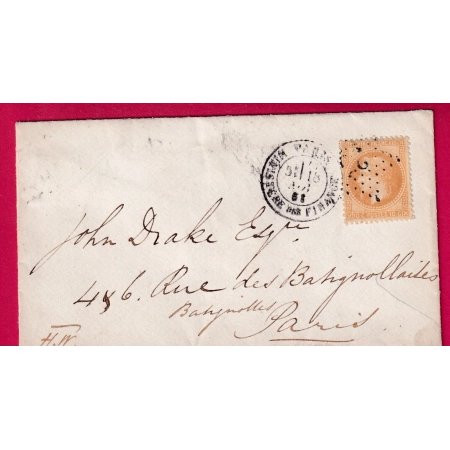 PARIS
MINISTERE DES FINANCES
John Drake Esqre
46. Rue des Batignollaises
Batignolles
Paris.
H.W.